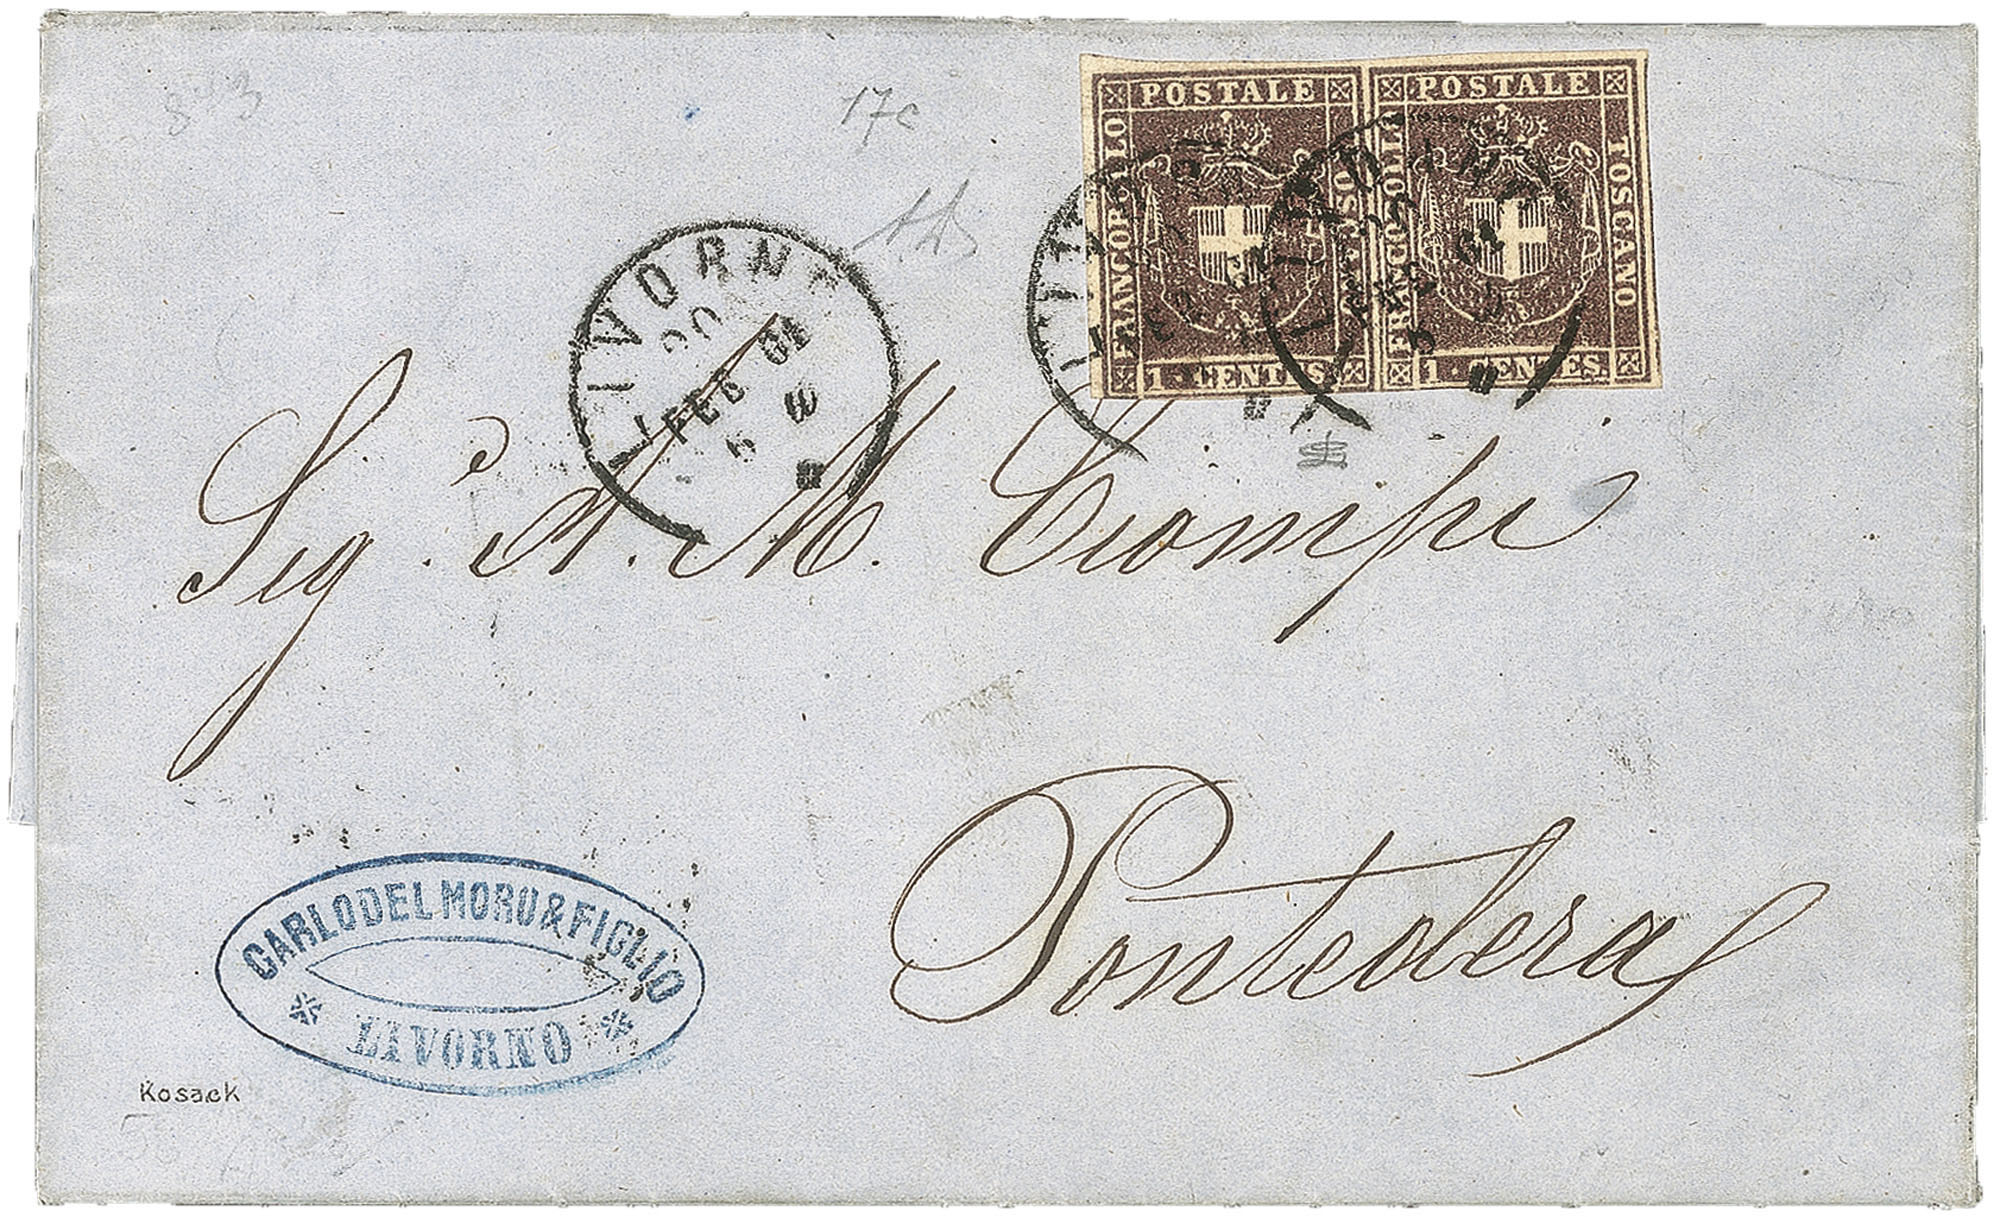 17c
POSTALE
FRANCOBOLLO
TOSCANO
1 CENTES.
POSTALE
FRANCOBOLLO
TOSCANO
1 CENTES.
LIVORNO
20
FEB 61
Sig. A. M. Ciompi
Pontedera
CARLO DEL MORO & FIGLIO
LIVORNO
Kosack